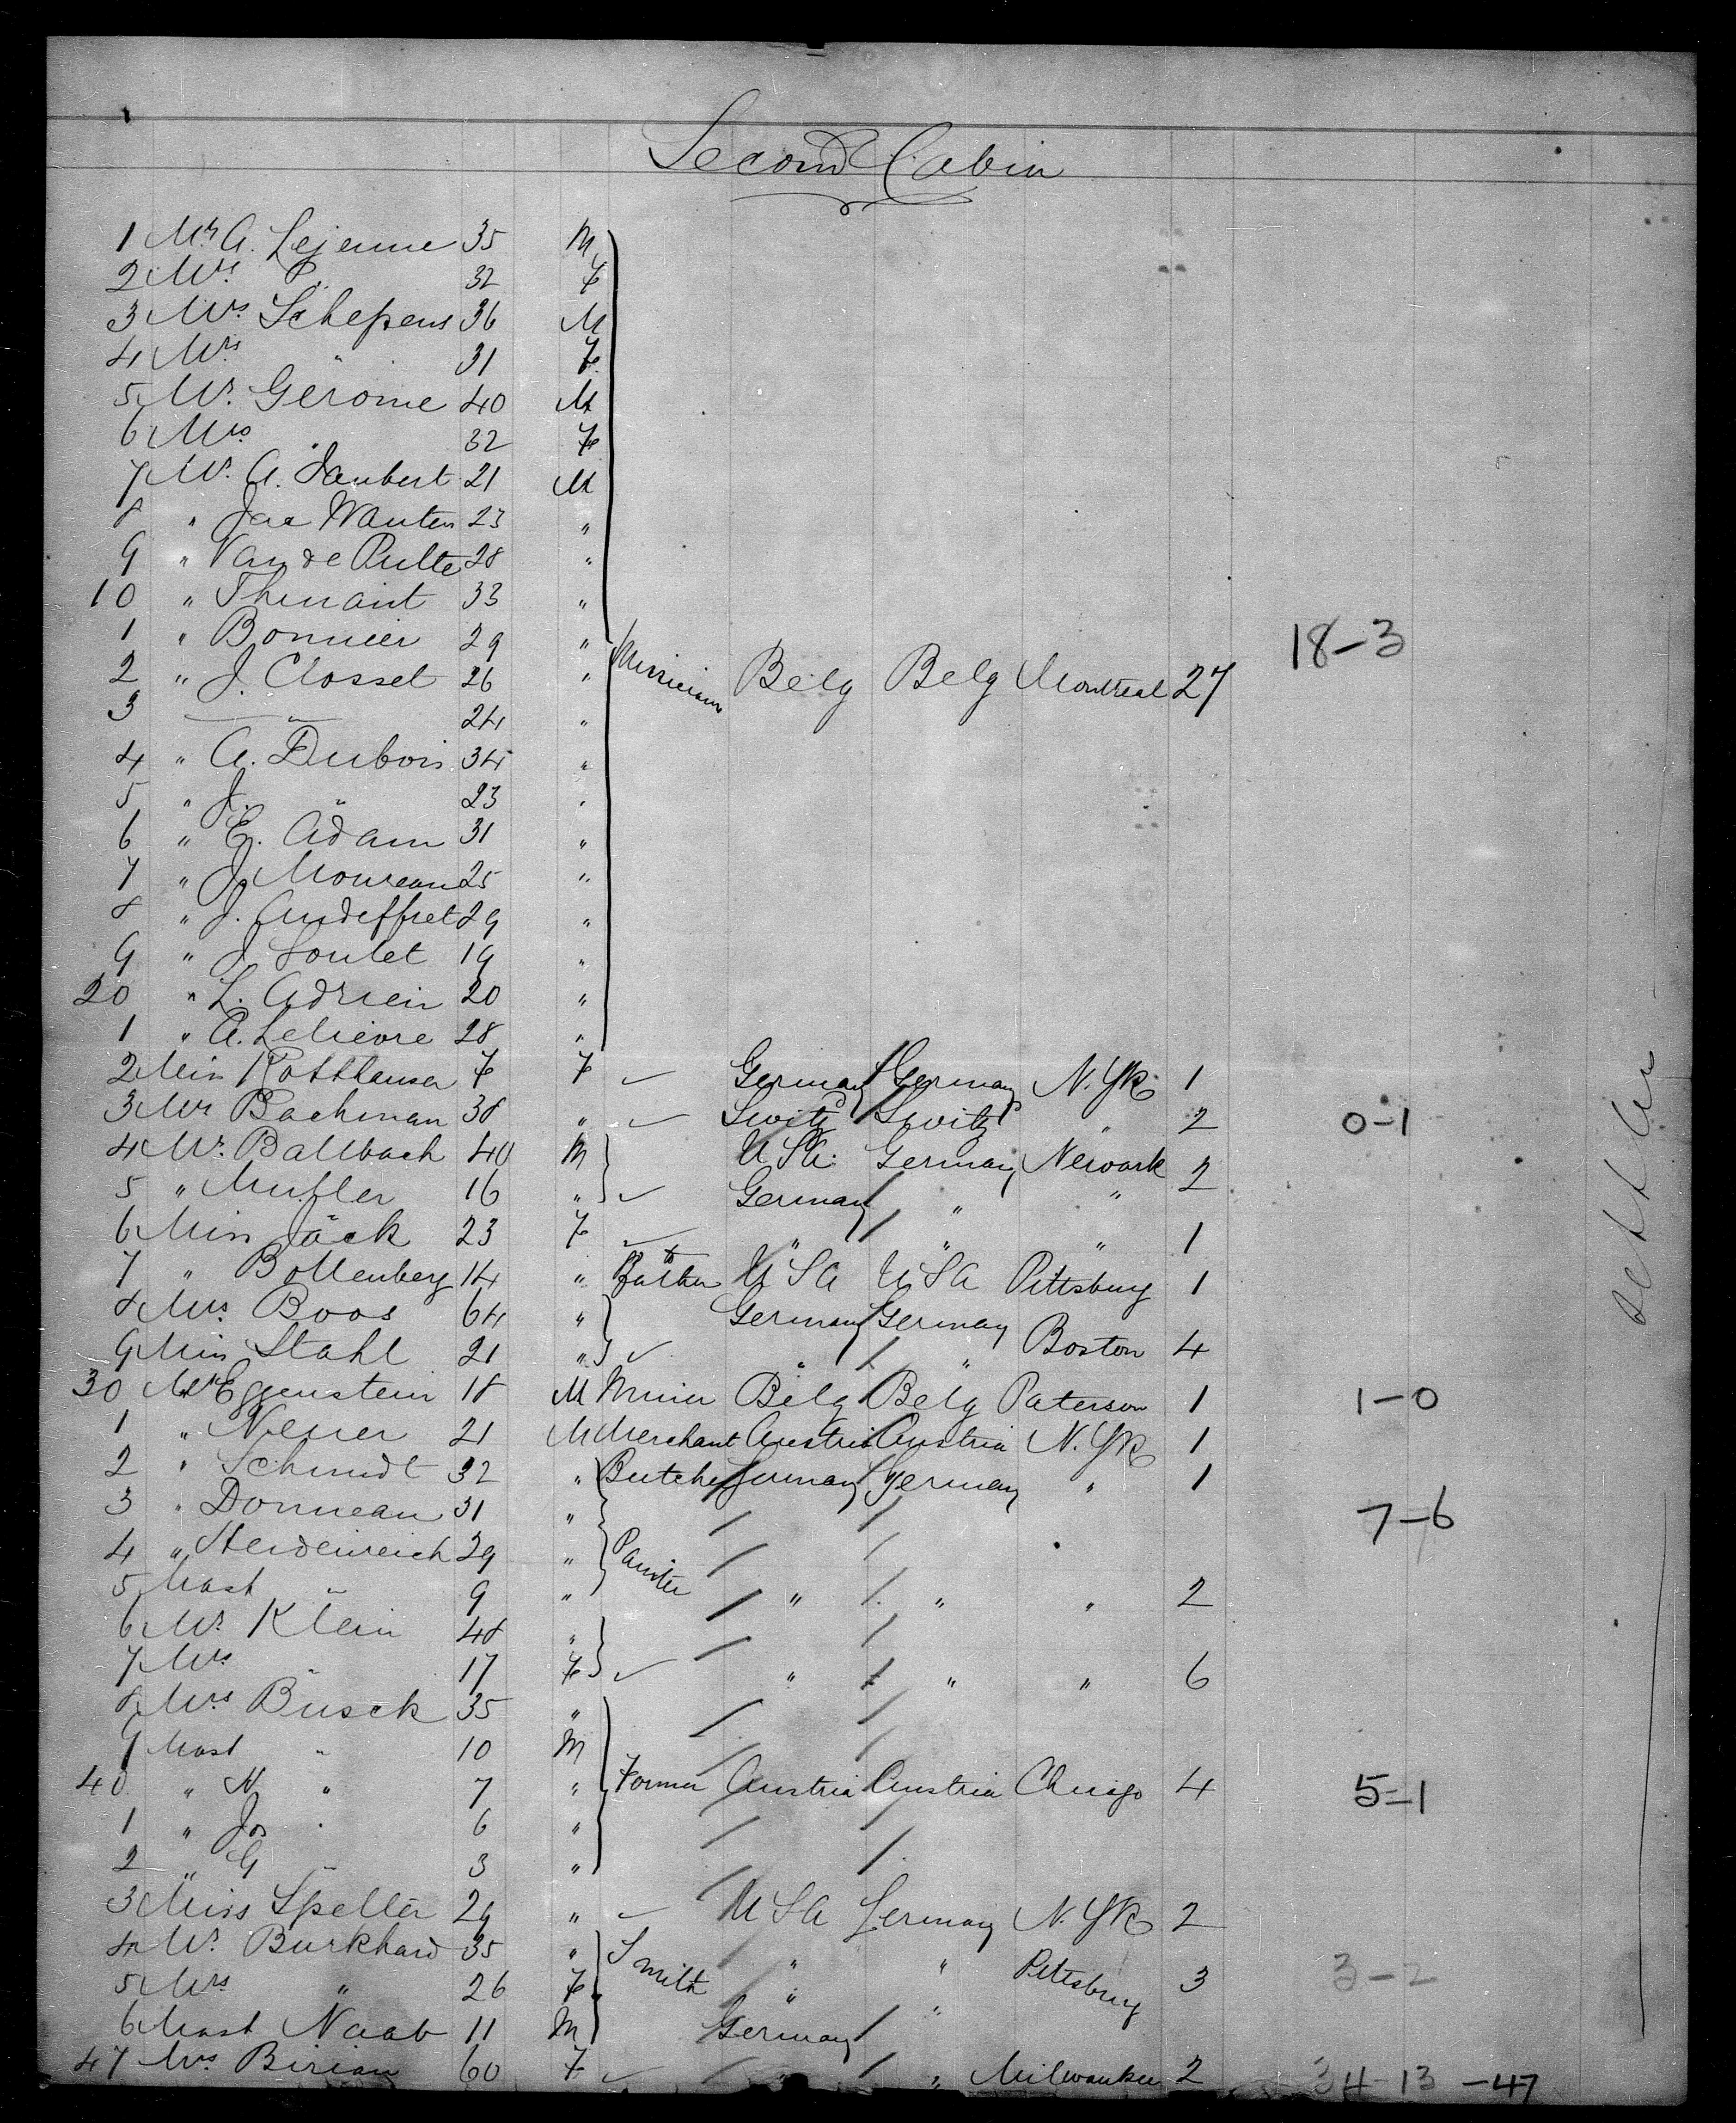 Second Cabin
1 Mr A. Lejeune 35 M
2 Mrs " 32 F
3 Mr. Schepens 36 M
4 Mrs " 31 F
5 Mr. Gérome 40 M
6 Mrs " 32 F
7 Mr. A. Jaubert 21 M
8 " Wauters 23 "
9 " Van de Putte 28 "
10 " Thinant 33 "
1 " Bonnier 29 " 18-3
2 " J. Closset 26 " Musicians Belg Belg Montreal 27
3 — " — 24 "
4 " A. Dubois 34 "
5 " J. " 23 "
6 " E. Adam 31 "
7 " J. Moureau 25 "
8 " J. Audeffret 29 "
9 " J. Goulet 19 "
20 " L. Adrien 20 "
1 " A. Lelievre 28 "
2 Miss Rotthauser 7 F ✓ Germany Germany N.Yk. 1
3 Mr Bachman 38 " ✓ Switzd Switzd " 2 0-1
4 Mr. Ballbach 40 M USA. Germany Newark 2
5 " Mufler 16 " ✓ Germany " "
6 Miss Jäck 23 F ✓ " " " 1
7 " Bottenberg 14 " USA USA Pittsburg 1
8 Mrs. Boos 64 " Germany Germany
9 Miss Stahl 21 " ✓ " " Boston 4
30 Mr Eggenstein 18 M Belg Belg Paterson 1 1-0
1 " 21 M Merchant Austria Austria N.Yk 1
2 " Schmidt 32 " Butcher Germany Germany " 1
3 " Donneau 31 " 7-6
4 " Heidenreich 29 " Painter
5 Mast " 9 " " " " 2
6 Mr. Klein 48 "
7 Mrs " 17 F ✓ " " " 6
8 Mrs Busek 35 "
9 Mast " 10 M
40 " N " 7 " Farmer Austria Austria Chicago 4 5-1
1 " Jos " 6 "
2 " G " 3 "
3 Miss Speller 29 " ✓ USA Germany N.Yk 2
4 Mr. Burkhard 35 " Smith " " Pittsburg 3 3-2
5 Mrs " 26 F " "
6 Mast Naab 11 M Germany
47 Mrs Birian 60 F ✓ " " Milwaukee 2 34-13-47